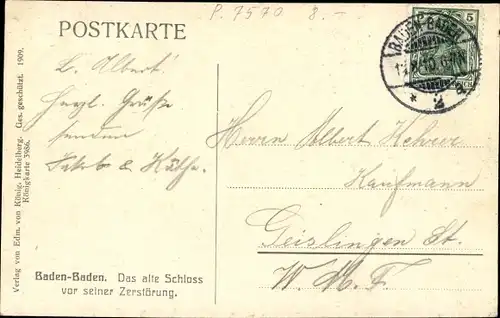 POSTKARTE
P. 7570 8.-
BADEN-BADEN
5
L. Albert!
Herzl. Grüße
senden
Jakob & Käthe.
Herrn Albert Kehrer
Kaufmann
Geislingen St.
W. M. F.
Baden-Baden. Das alte Schloss
vor seiner Zerstörung.
Verlag von Edm. von König, Heidelberg. Ges. geschützt. 1909.
Königkarte 3986.